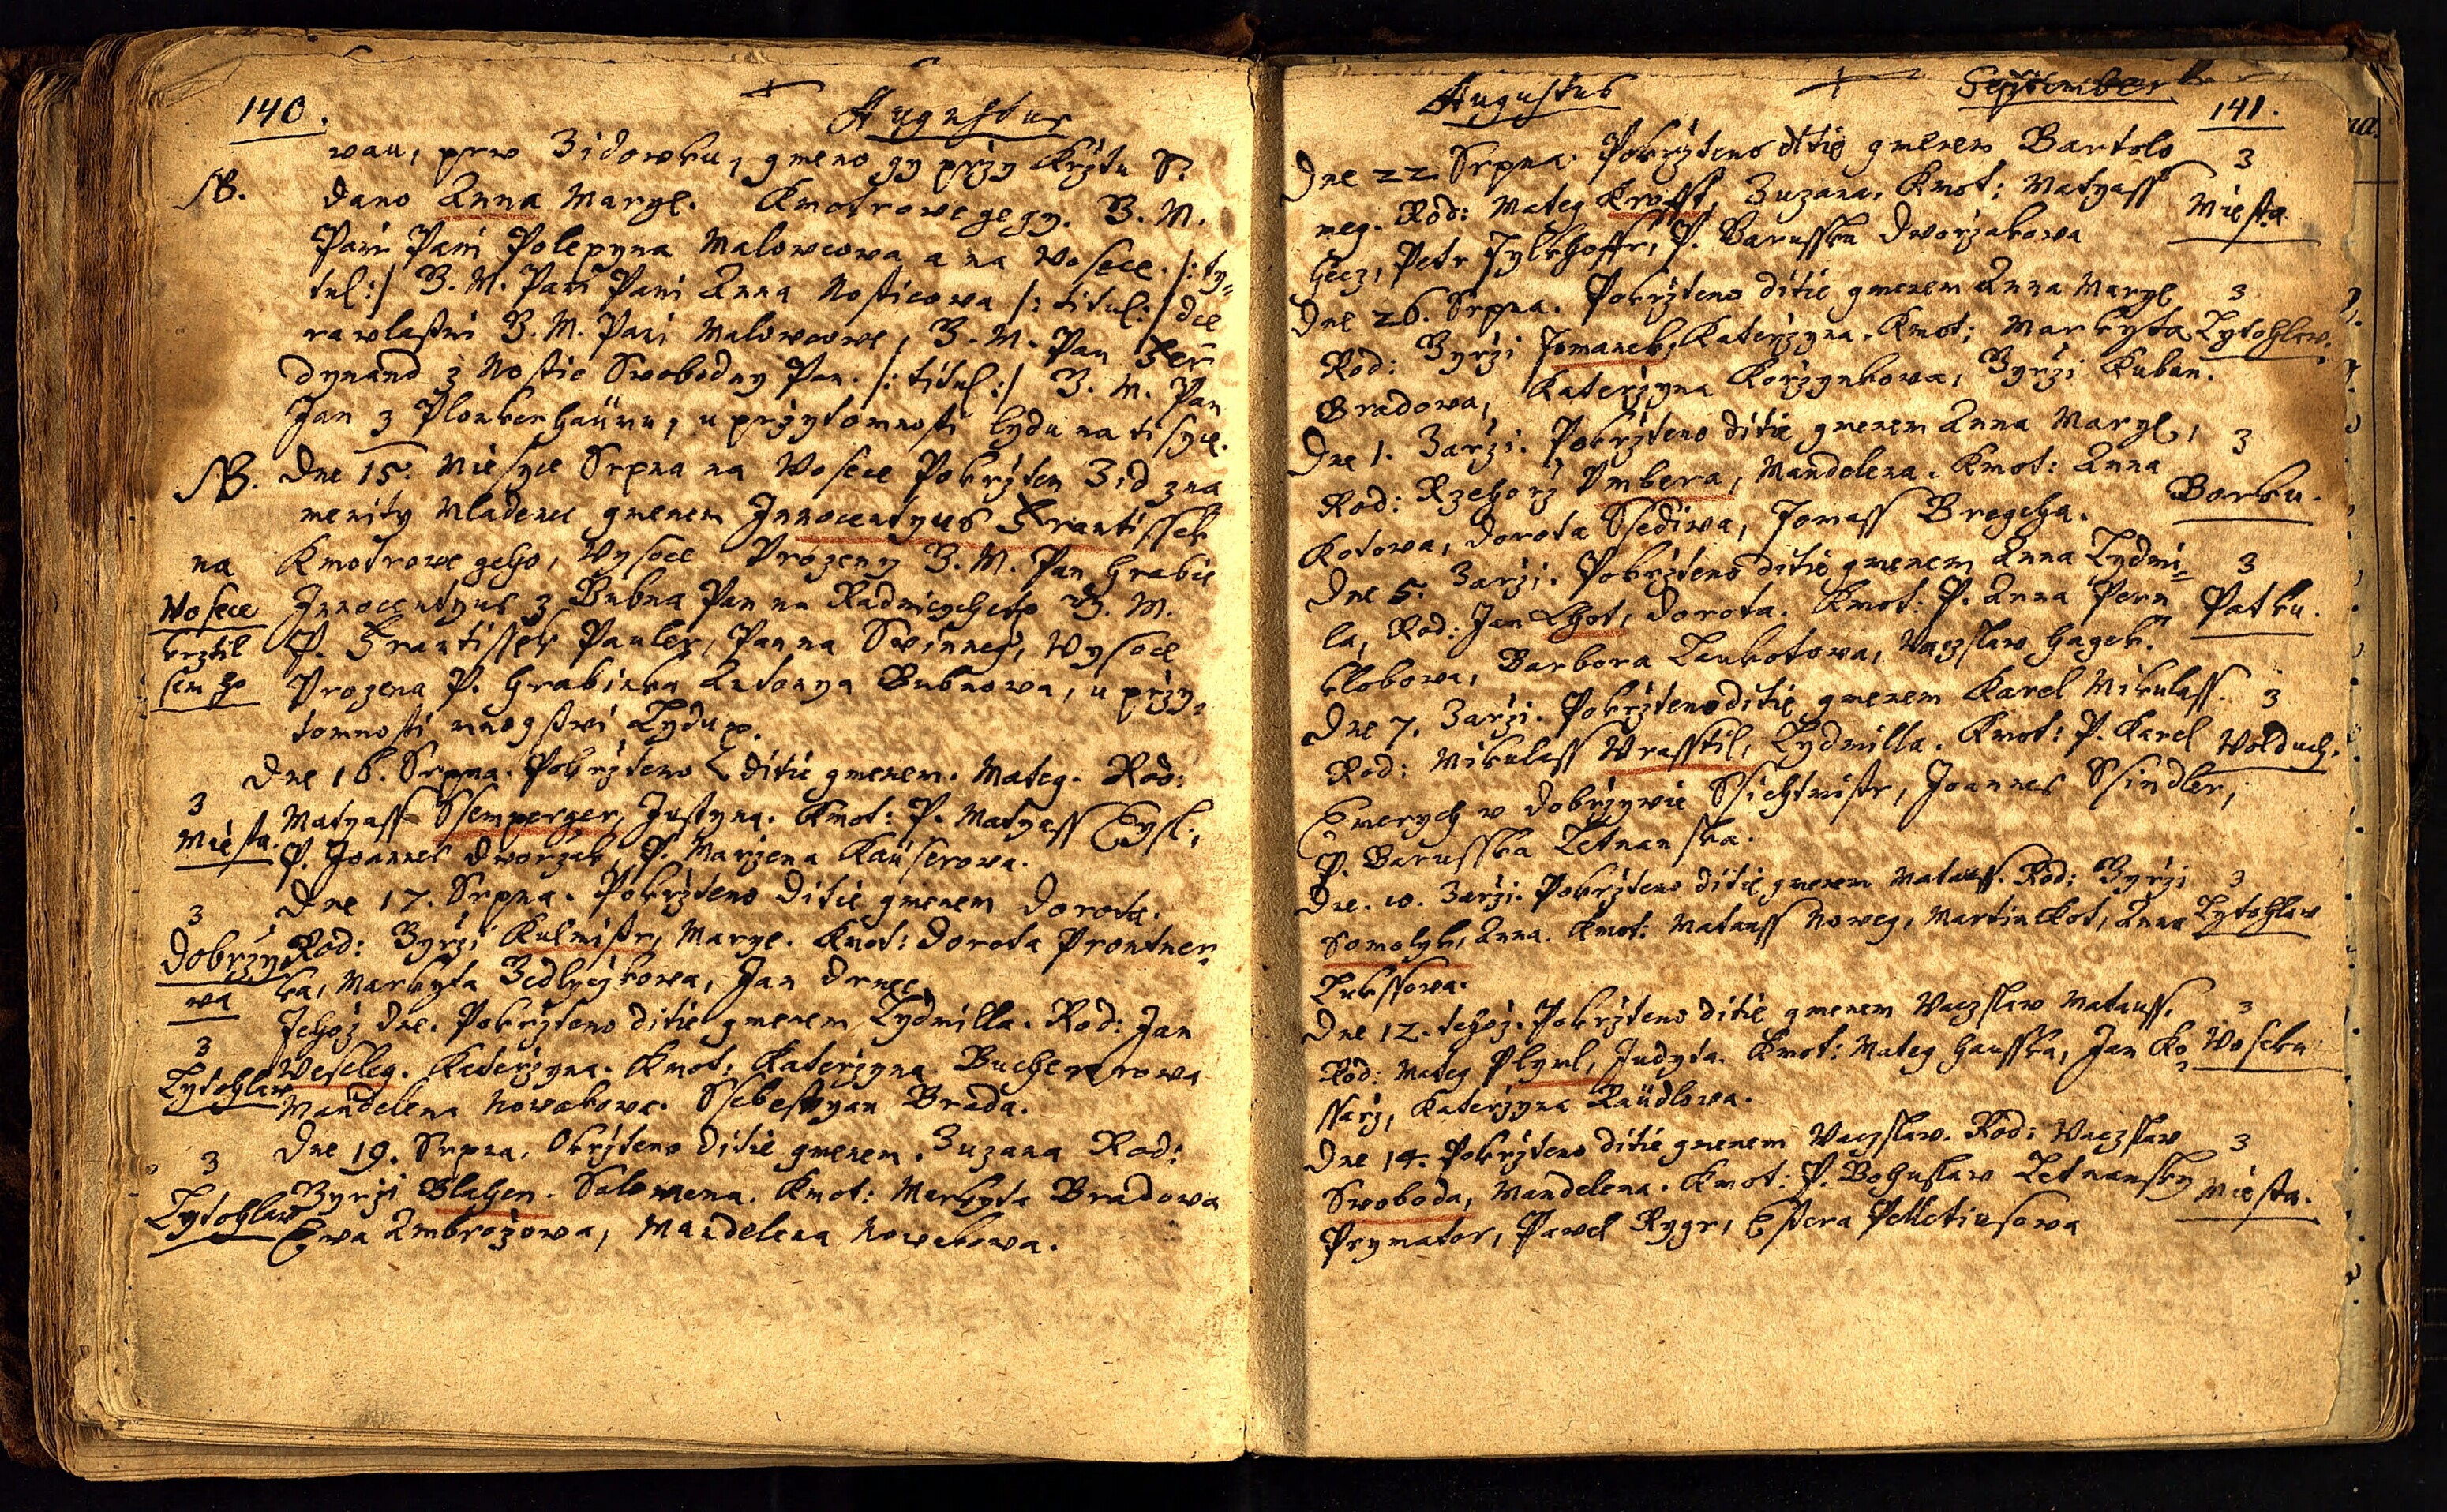 140. Augustus
wan, prw Zidowku, gmeno gy przy Krztu S?
NB. dano Anna Marye. Kmotrowe gegy. B. M.
Pani Pani Polexyna Malowcowa a na Wosece. /: ty,
tul :/ B. M. Pani Pani Anna Nosticowa /: titul :/ dce
ra wlastni B. M. Pani Malowcowe, B. M. Pan Fer
dynand z Nostic Swobodny Pan. /: titul :/ B. M. Pan
Jan z Plonkenhaüzu, u przytomnosti lydu na tisyce.
NB. Dne 15. Miesyce Srpna na Wosece Pokrzten Zid zna
menity Mladenec gmenem Innocentyus Frantissek
na Kmotrowe geho, Wysoce Urozeny B. M. Pan Hrabie
Wosece Innocentyus z Bubna Pan na Radnicych etc B. M.
krztil P. Frantissek Pauler, Pan na Swinneg, Wysoce
sem ho Urozena P. Hrabinka Antonya Bubnowa, u przy,
tomnosti mnozstwi Lydu
Dne 16. Srpna. Pokrzteno ditie gmenem. Mateg. Rod:
z Miesta. Matyass Ssemperger, Justyna. Kmot: P. Matyass Eysl:,
P. Joannes Dworzak, P. Marzena Kaüserowa.
Dne 17. Srpna. Pokrzteno Ditie gmenem Dorota.
z Dobrzy Rod: Byrzi Kulmistr, Marye. Kmot: Dorota Prontner,
wa ka, Markyta Zedlyczkowa, Jan Drnec
Tehoz dne. Pokrzteno ditie gmenem Lydmilla. Rod: Jan
z Lytohlaw Weseleg. Katerzyna. Kmot: Katerzyna Buchenrowa
Mandelena Nowakowa. Ssebestyan Brada.
Dne 19. Srpna. Okrzteno Ditie gmenem. Zuzana Rod:
z Lytohlaw Byrzi Blahen. Salomena. Kmot: Markyta Bradowa
Ewa Ambrozowa, Mandelena Nowakowa.
Augustus September 141.
Dne 22 Srpna. Pokrzteno ditie gmenem Bartolo z
meg. Rod: Mateg Krafft, Zuzana. Kmot: Matyass Miesta
Hecz, Petr Tylkhoffr, P. Barusska Dworzakowa
Dne 26. Srpna. Pokrzteno ditie gmenem Anna Marye z
Rod: Byrzi Tomanek, Katerzyna. Kmot: Markyta Lytohlaw.
Bradowa, Katerzyna Korzynkowa, Byrzi Kuban.
Dne 1. Zarzi. Pokrzteno ditie gmenem Anna Marye, z
Rod: Rzehorz Umbera, Mandelena. Kmot: Anna Borku.
Kotowa, Dorota Ssediwa, Tomass Bregcha.
Dne 5. Zarzi. Pokrzteno ditie gmenem Anna Lydmi, z
la, Rod: Jan Lhot, Dorota. Kmot: P. Anna Pern Patku.
klobowa, Barbora Laukotowa, Waczslaw Hagek.
Dne 7. Zarzi. Pokrzteno ditie gmenem Karel Mikulass. z
Rod: Mikulass Wrasstil, Lydmilla. Kmot: P. Karel Wolduch.
Emerych w Dobrzywie Ssichtmistr, Joannes Ssindler,
P. Barusska Letnanska.
Dne. 10. Zarzi. Pokrzteno ditie gmenem Matauss. Rod: Byrzi z
Somolyk, Anna. Kmot: Matauss Noweg, Martin Kot, Anna Lytohlaw
Lukssowa.
Dne 12. tehoz. Pokrzteno ditie gmenem Waczslaw Matauss. z
Rod: Mateg Plyml, Judyta. Kmot: Mateg Hausska, Jan Ko, Woseku
ssarz, Katerzyna Raüdlowa.
Dne 14. Pokrzteno ditie gmenem Waczslaw. Rod: Waczslaw z
Swoboda, Mandelena. Kmot: P. Bohuslaw Letnansky Miesta.
Prymator, Pawel Rygr, Estera Pelletiusowa